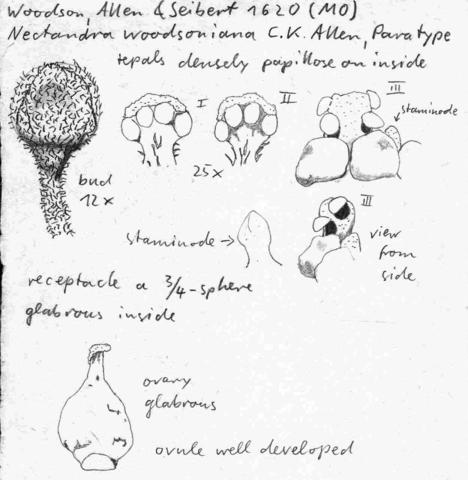 Woodson, Allen & Seibert 1620 (MO)
Nectandra woodsoniana C.K. Allen, Paratype
tepals densely papillose on inside
I
II
III
staminode
bud
12x
25x
III
staminode
view
from
side
receptacle a 3/4-sphere
glabrous inside
ovary
glabrous
ovule well developed